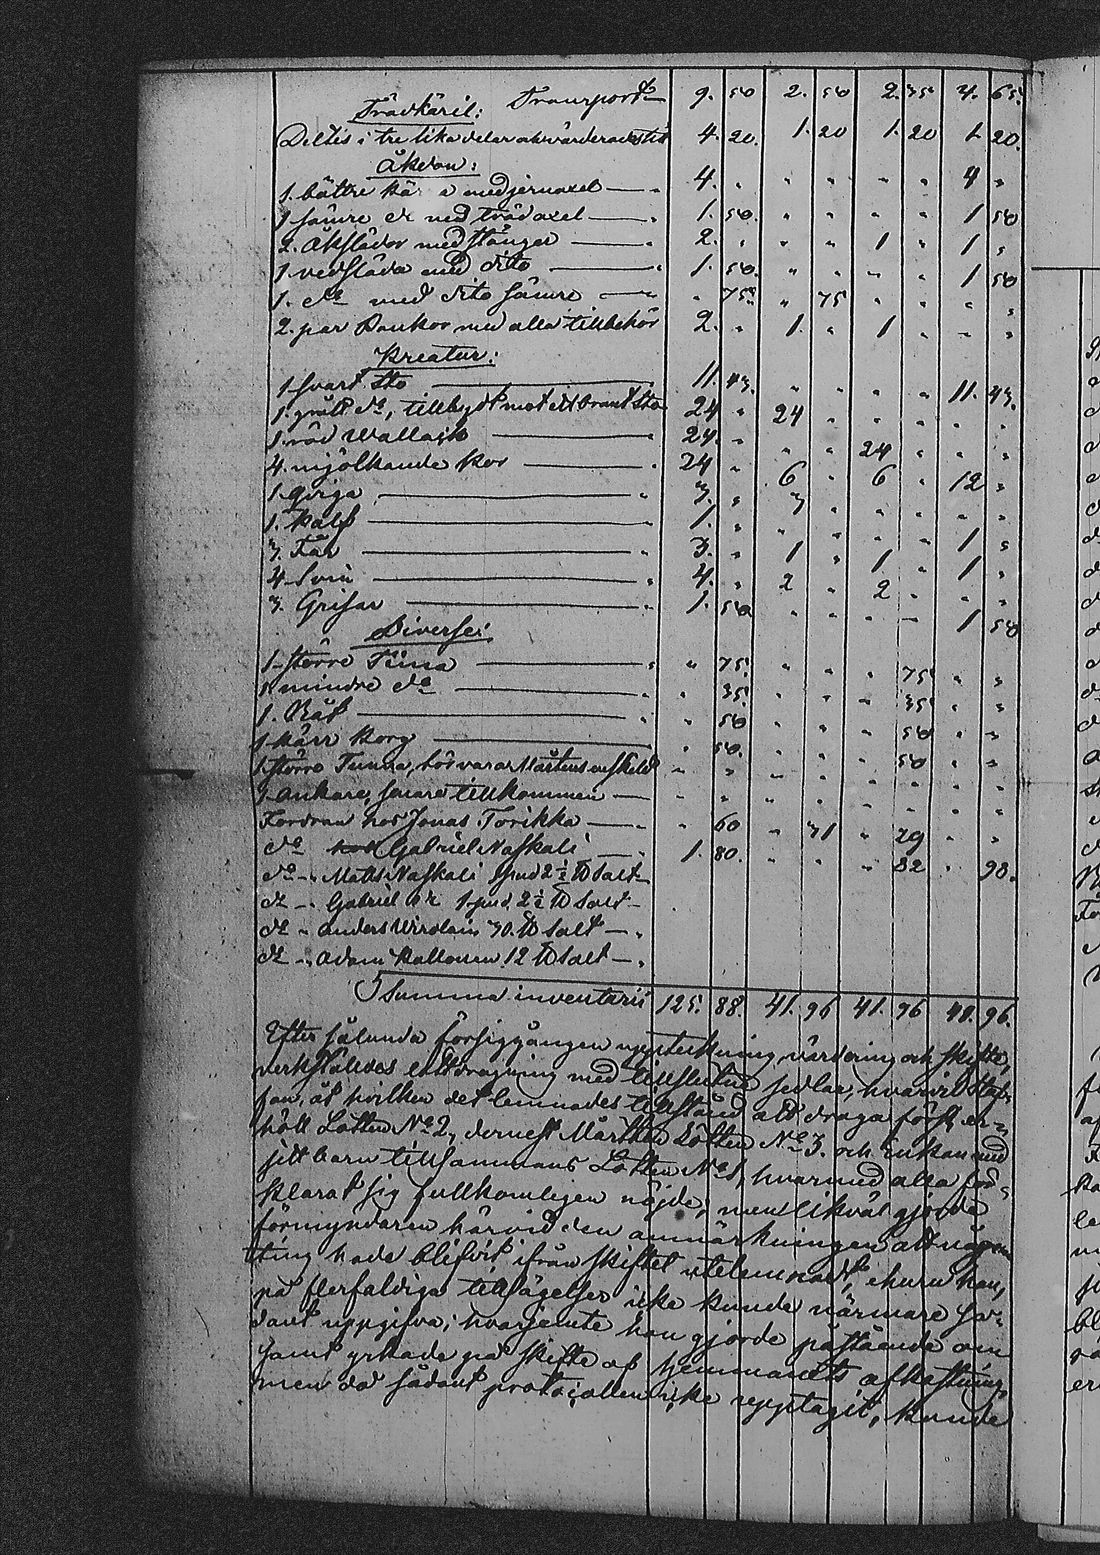 Transport 9. 50 2. 50 2. 35 4. 65.
Trädkäril:
Deltes i tre lika delar och värderades till 4. 20. 1. 20 1. 20 1. 20.
Åkdon:
1. bättre kä a med jernaxel — 4. " " " " " 4 "
1 sämre do med trädaxel — 1. 50. " " " " 1 50
2. Åkslädor med stänger — 2. " " " 1 " 1 "
1. vedsläda med dito — 1. 50. " " " " 1 50
1. do med dito sämre — " 75. " 75 " " " "
2. par Bankor med alla tillbehör 2. " 1. " 1 " " "
Kreatur:
1 svart Sto — 11. 43. " " " " 11. 43.
1. grått do, tillbydt mot ett brunt Sto 24 " 24 " " " " "
1. röd Wallack — 24. " " " 24 " " "
4. mjölkande Kor — 24 " 6 " 6 " 12 "
1. qviga — 3. " 3 " " " " "
1. Kalf — 1. " " " " " 1 "
3. Får — 3. " 1 " 1 " 1 "
4. Svin — 4. " 2 " 2 " " "
3. Grisar — 1. 50 " " " — 1 50
Diverse:
1 större Tina — " 75. " " " 75 " "
1 mindre do — " 35. " " " 35 " "
1. Båt — " 50 " " " 50 " "
1 kärr Korg — " 50. " " " 50 " "
1 större Tunna, hörvarar Mårtens enskild " " " " " " " "
1 ankare, senare tillkommen — " " " " " " " "
Fordran hos Jonas Torikka — " 60 " 31 " 29 " "
do hos Gabriel Naskali — 1. 80. " " " 82 " 98.
do — Matts Naskali 1 pud 2½ ℔ Salt —
do — Gabriel 1 pud. 2½ ℔ Salt —
do " Anders 30. ℔ Salt —
do — Adam Kallonen 12 ℔ Salt —
Summa inventarii 125. 88. 41. 96 41. 96 41. 96.
Efter sålunda försiggången uppteckning, värdering och skifte,
verkställdes lottdragning med tillslutne sedlar, hvarvid Staf=
fan, åt hvilken det lemnades tillstånd att draga först, er=
höll Lotten No 2, dernest Mårthen Lotten No 3. och Enkan med
sitt barn tillsammans Lotten No 1, hvarmed alla för=
klarat sig fullkomligen nöjde; men likväl gjorde
förmyndaren härvid den anmärkningen att någon
ting hade blifvit ifrån skiftet utelemnadt, ehuru han,
på flerfaldiga tillsägelser icke kunde närmare så=
dant uppgifva; hvarjemte han gjorde påstående om
samt yrkade på skifte af hemmanets afkastning,
men då sådant protocollen icke upptagit, kunde